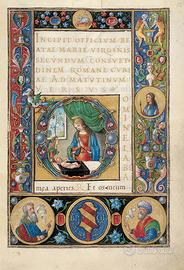 INCIPIT OFFICIUM BE
ATAE MARIE VIRGINIS
SECUNDUM CONSUETV
DINEM ROMANE CURI
AE AD MATUTINUM
VERS
DOMINE LABIA
mea aperies. Et os meum